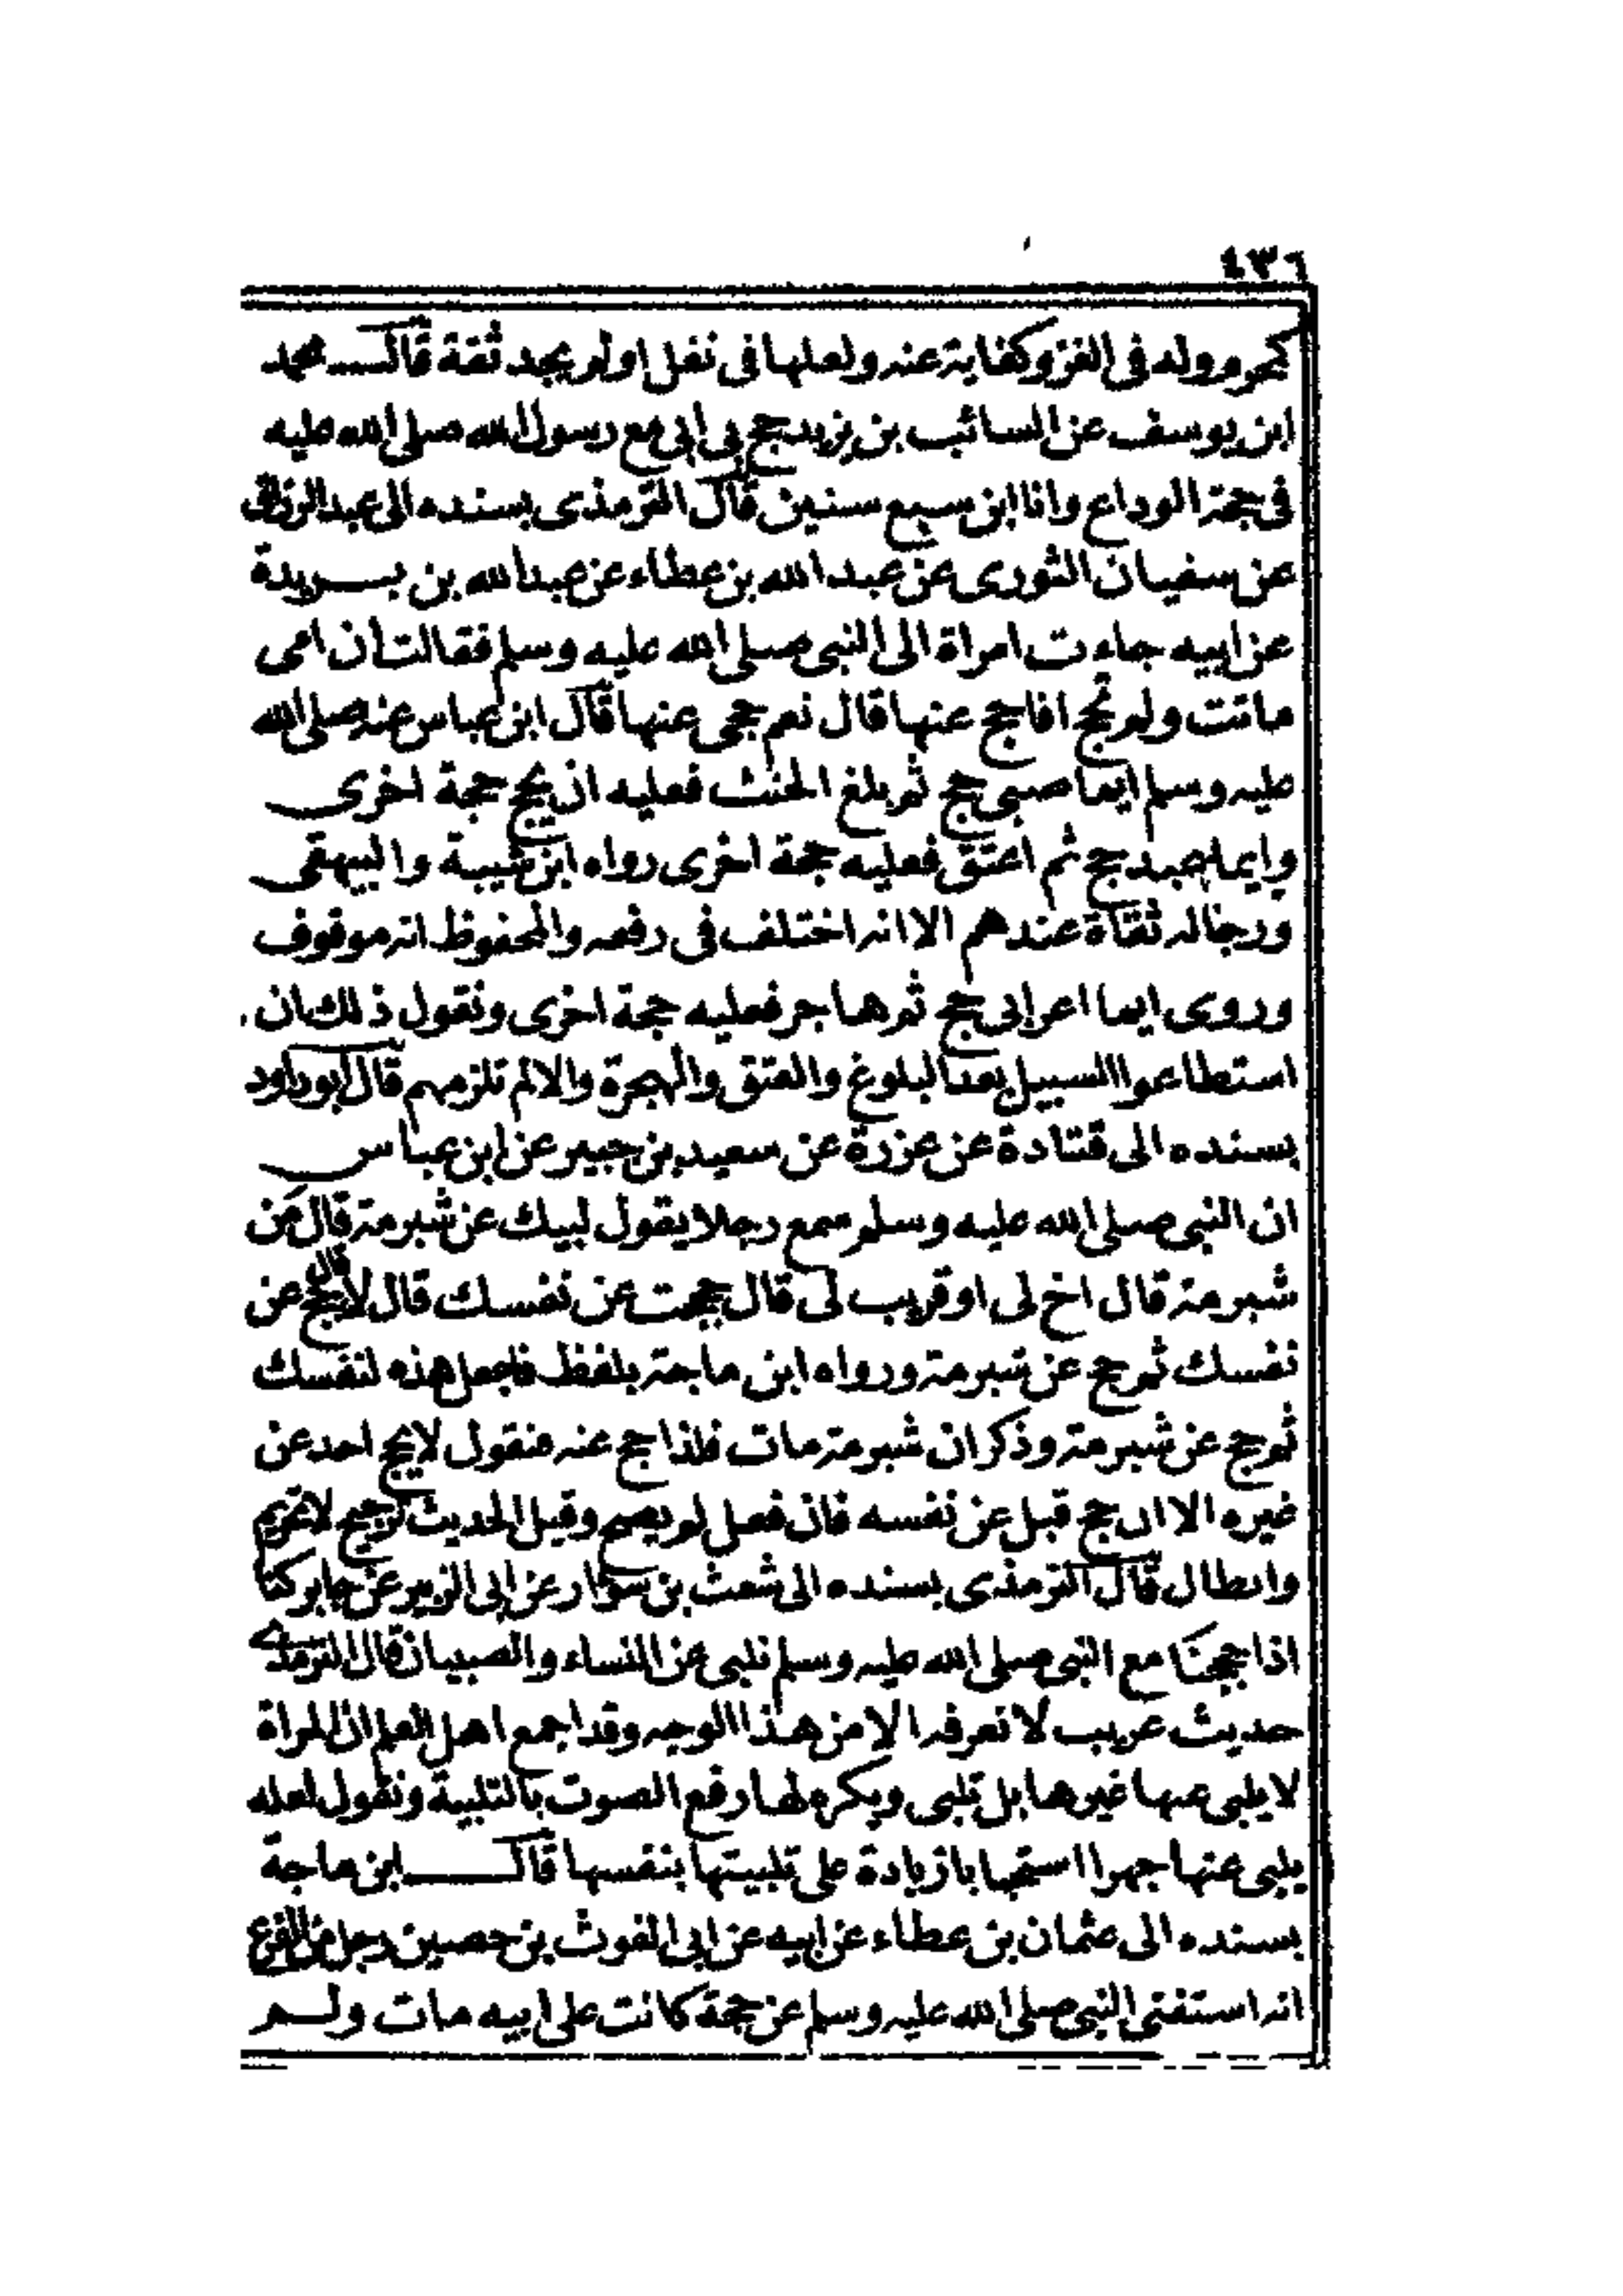 ٤٣٦
كمحرم وولد فى الغزو كفاية عنه ولعلها فى نفل او لم يجد ثقة قال محمد
ابن يوسف عن السائب بن يزيد حج بى ابى مع رسول الله صلى الله عليه
فى حجة الوداع وانا ابن سبع سنين قال الترمذى بسنده الى عبد الرزاق
عن سفيان الثورى عن عبد الله بن عطاء عن عبد الله بن بريدة
عن ابيه جاءت امراة الى النبى صلى الله عليه وسلم فقالت ان امى
ماتت ولم تحج افاحج عنها قال نعم حجى عنها قال ابن عباس عنه صلى الله
عليه وسلم ايما صبى حج ثم بلغ الحنث فعليه ان يحج حجة اخرى
وايما عبد حج ثم اعتق فعليه حجة اخرى رواه ابن شيبة والبيهقى
ورجاله ثقاة عندهم الا انه اختلف فى رفعه والمحفوظ انه موقوف
وروى ايما اعرابى حج ثم هاجر فعليه حجة اخرى ونقول ذلك ان
استطاعوا السبيل بعد البلوغ والعتق والهجرة والا لم تلزمهم قال ابو داود
بسنده الى قتادة عن عزرة عن سعيد بن جبير عن ابن عباس
ان النبى صلى الله عليه وسلم سمع رجلا يقول لبيك عن شبرمة قال من
شبرمة قال اخ لى او قريب لى قال حججت عن نفسك قال لا قال حج عن
نفسك ثم حج عن شبرمة ورواه ابن ماجة بلفظ فاجعل هذه لنفسك
ثم حج عن شبرمة وذكر ان شبرمة مات فلذا حج عنه فنقول لا يحج احد عن
غيره الا ان حج قبل عن نفسه فان فعل لم يصح وقيل الحديث ترجيح لا تحريم
وابطال قال الترمذى بسنده الى شعث بن سوار عن ابى الزبير عن جابر كنا
اذا حججنا مع النبى صلى الله عليه وسلم نلبى عن النساء والصبيان قال الترمذى
حديث غريب لا نعرفه الا من هذا الوجه وقد اجمع اهل العلم ان المراة
لا يلبى عنها غيرها بل تلبى ويكره لها رفع الصوت بالتلبية ونقول لعله
يلبى عنها جهرا استحبابا زيادة على تلبيتها بنفسها قال ابن ماجة
بسنده الى عثمان بن عطاء عن ابيه عن ابى الغوث بن حصين رجل من الفرع
انه استفتى النبى صلى الله عليه وسلم عن حجة كانت على ابيه مات ولم